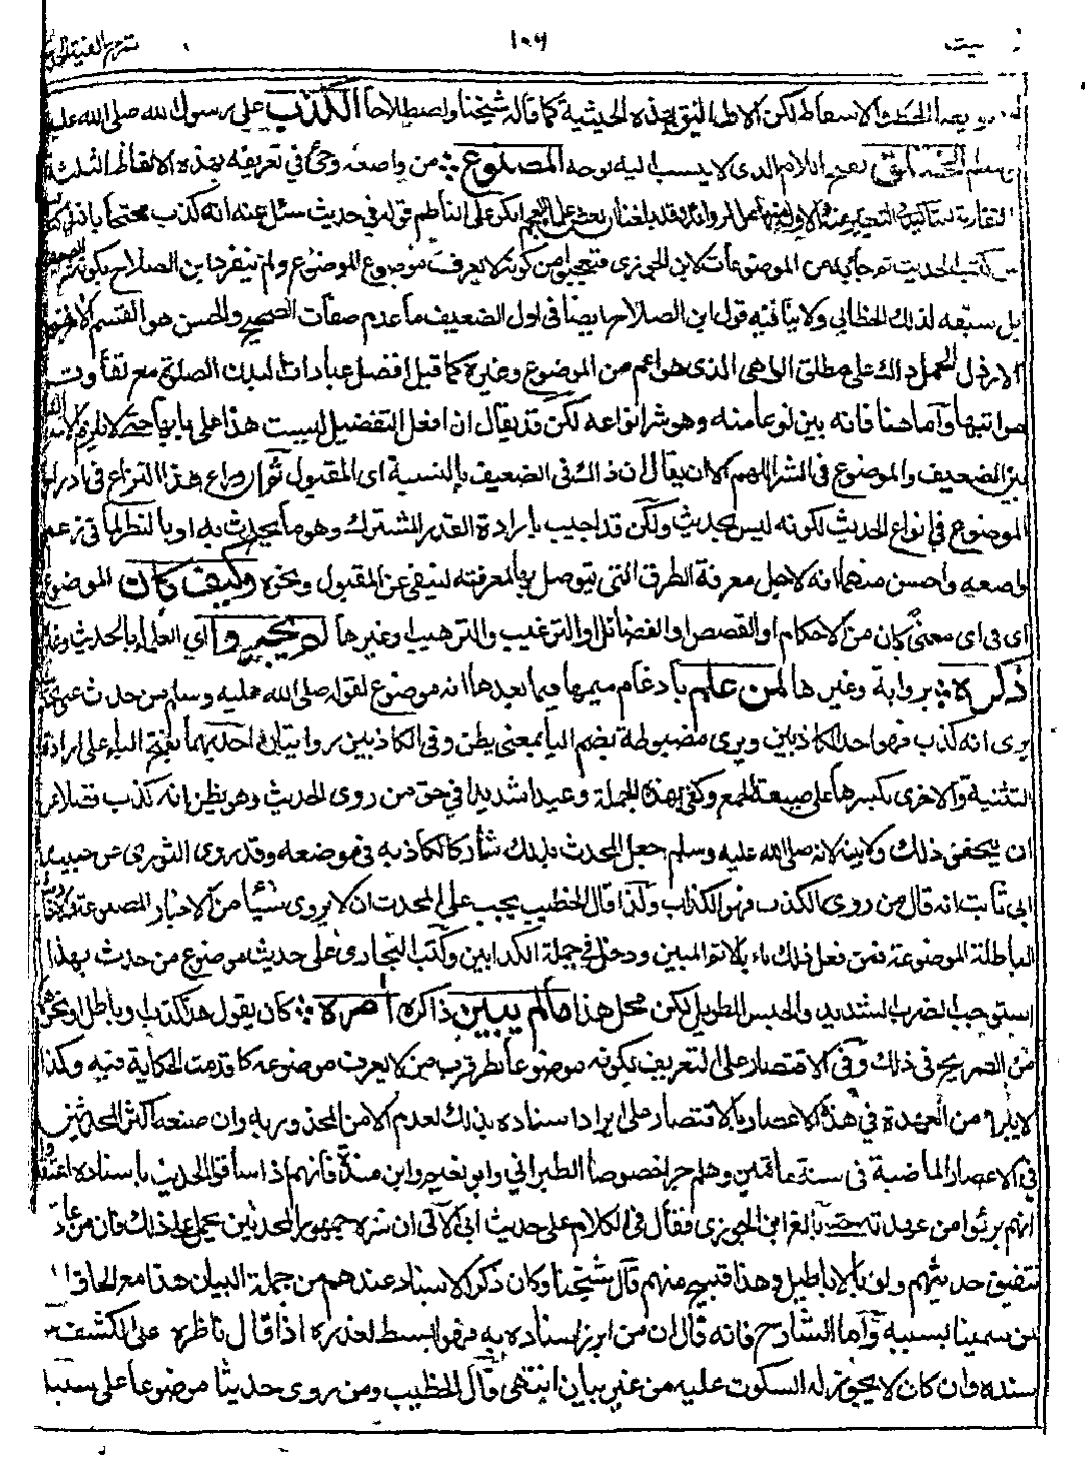 ١٠٦
لكن الاول اليق بهذه الحيثية كما قاله شيخنا واصطلاحا الكذب على رسول الله صلى الله عليه
الذى لا ينسب اليه بوجه المصنوع من واضعه وجئ في تعريفه بهذه الالفاظ الثلثة
المتقاربة للتأكيد في التنفير عنه قوله في حديث سئل عنه انه كذب محتجا بانه
كتب الحديث ثم جاء به من الموضوعات لابن الجوزى فتعجبوا من كونه لا يعرف موضوع الموضوع ولم ينفرد ابن الصلاح بكونه
بل سبقه لذلك الخطابي ولا ينافيه قول ابن الصلاح ايضا في اول الضعيف ما عدم صفات الصحيح والحسن هو القسم الاخر
الارذل لحمل ذلك على مطلق الواهى الذى هو اعم من الموضوع وغيره كما قيل افضل عبادات البدن الصلوة مع تفاوت
مراتبها وأما هنا فانه بين نوعا منه وهو شر انواعه لكن قد يقال ان افعل التفضيل ليست هنا على بابها حتى لا يلزم
بين الضعيف والموضوع في الشر اللهم الا ان يقال ان ذلك فى الضعيف بالنسبة اى المقبول ثم ارواع هذا النزاع في ادراج
الموضوع في انواع الحديث لكونه ليس بحديث ولكن قد اجيب بارادة القدر المشترك وهو ما يحدث به او بالنظر لما في زعم
واضعه واحسن منهما انه لاجل معرفة الطرق التى يتوصل بها لمعرفته لينفى عن المقبول ونحوه وكيف كان الموضوع
اى فى اى معنى كان من الاحكام او القصص او الفضائل او الترغيب والترهيب او غيرها لم يجيزوا اي العلماء بالحديث وغيره
ذكره برواية وغيرها لمن علم بادغام ميمها فيما بعدها انه موضوع لقوله صلى الله عليه وسلم من حدث عنى بحديث
يرى انه كذب فهو احد الكاذبين ويرى مضبوطة بضم اليا بمعنى يظن وفى الكاذبين روايتان احديهما بفتح الباء على ارادة
التثنية والاخرى بكسرها على صيغة الجمع وكفى بهذه الجملة وعيدا شديدا في حق من روى الحديث وهو يظن انه كذب فضلا عن
ان يتحقق ذلك ولا يبينه لانه صلى الله عليه وسلم جعل المحدث بذلك مشاركا لكاذبه فى وضعه وقد روى الثورى عن حبيب بن
ابى ثابت انه قال من روى الكذب فهو الكذاب ولذا قال الخطيب يجب على المحدث ان لا يروى شيئا من الاخبار المصنوعة والاحاديث
الباطلة الموضوعة فمن فعل ذلك باء بالاثم المبين ودخل في جملة الكذابين وكتب البخارى على حديث موضوع من حدث بهذا
استوجب الضرب الشديد والحبس الطويل لكن محل هذا ما لم يبين ذاكره امره كان يقول هذا كذب او باطل او نحوهما
من الصريح فى ذلك وفى الاقتصار على التعريف بكونه موضوعا نظر فرب من لا يعرف موضوعه كما قدمت الحكاية فيه وكذا
لا يبرأ من العهدة في هذه الاعصار بالاقتصار على ايراد اسناده بذلك لعدم الامن من المحذور به وان صنعه اكثر المحدثين
في الاعصار الماضية فى سنة مأتين وهلم جرا خصوصا الطبرانى وابو نعيم وابن مندة فانهم اذا ساقوا الحديث باسناده اعتقدوا
انهم برئوا من عهدته حتى بالغ ابن الجوزى فقال في الكلام على حديث ابى الآتى ان شره جمهور المحدثين يحمل على ذلك فان من عادتهم
تنفيق حديثهم ولو بالاباطيل وهذا قبيح منهم قال شيخنا وكان ذكر الاسناد عندهم من جملة البيان هذا مع الحاق
من سمينا بسببه وأما الشارح فانه قال ان من ابرز اسناده به فهو ابسط لعذره اذ احال ناظره على الكشف عن
سنده وان كان لا يجوز له السكوت عليه من غير بيان انتهى وقال الخطيب ومن روى حديثا موضوعا على سبيل